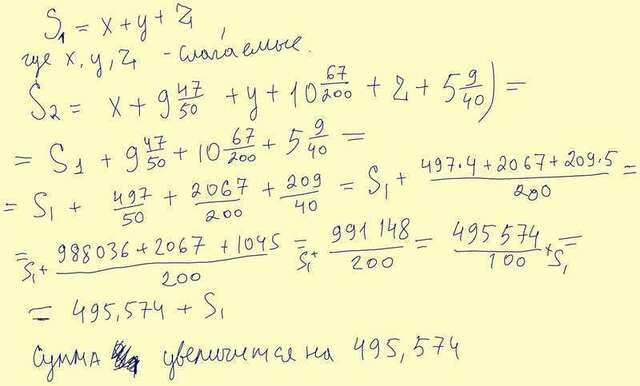 S₁ = x + y + z
где x, y, z - слагаемые.
S₂ = x + 9 47/50 + y + 10 67/200 + z + 5 9/40) =
= S₁ + 9 47/50 + 10 67/200 + 5 9/40 =
= S₁ + 497/50 + 2067/200 + 209/40 = S₁ + (497·4 + 2067 + 209·5)/200 =
= S₁ + (988036 + 2067 + 1045)/200 = S₁ + 991 148/200 = 495 574/100 + S₁ =
= 495,574 + S₁
Сумма увеличится на 495,574